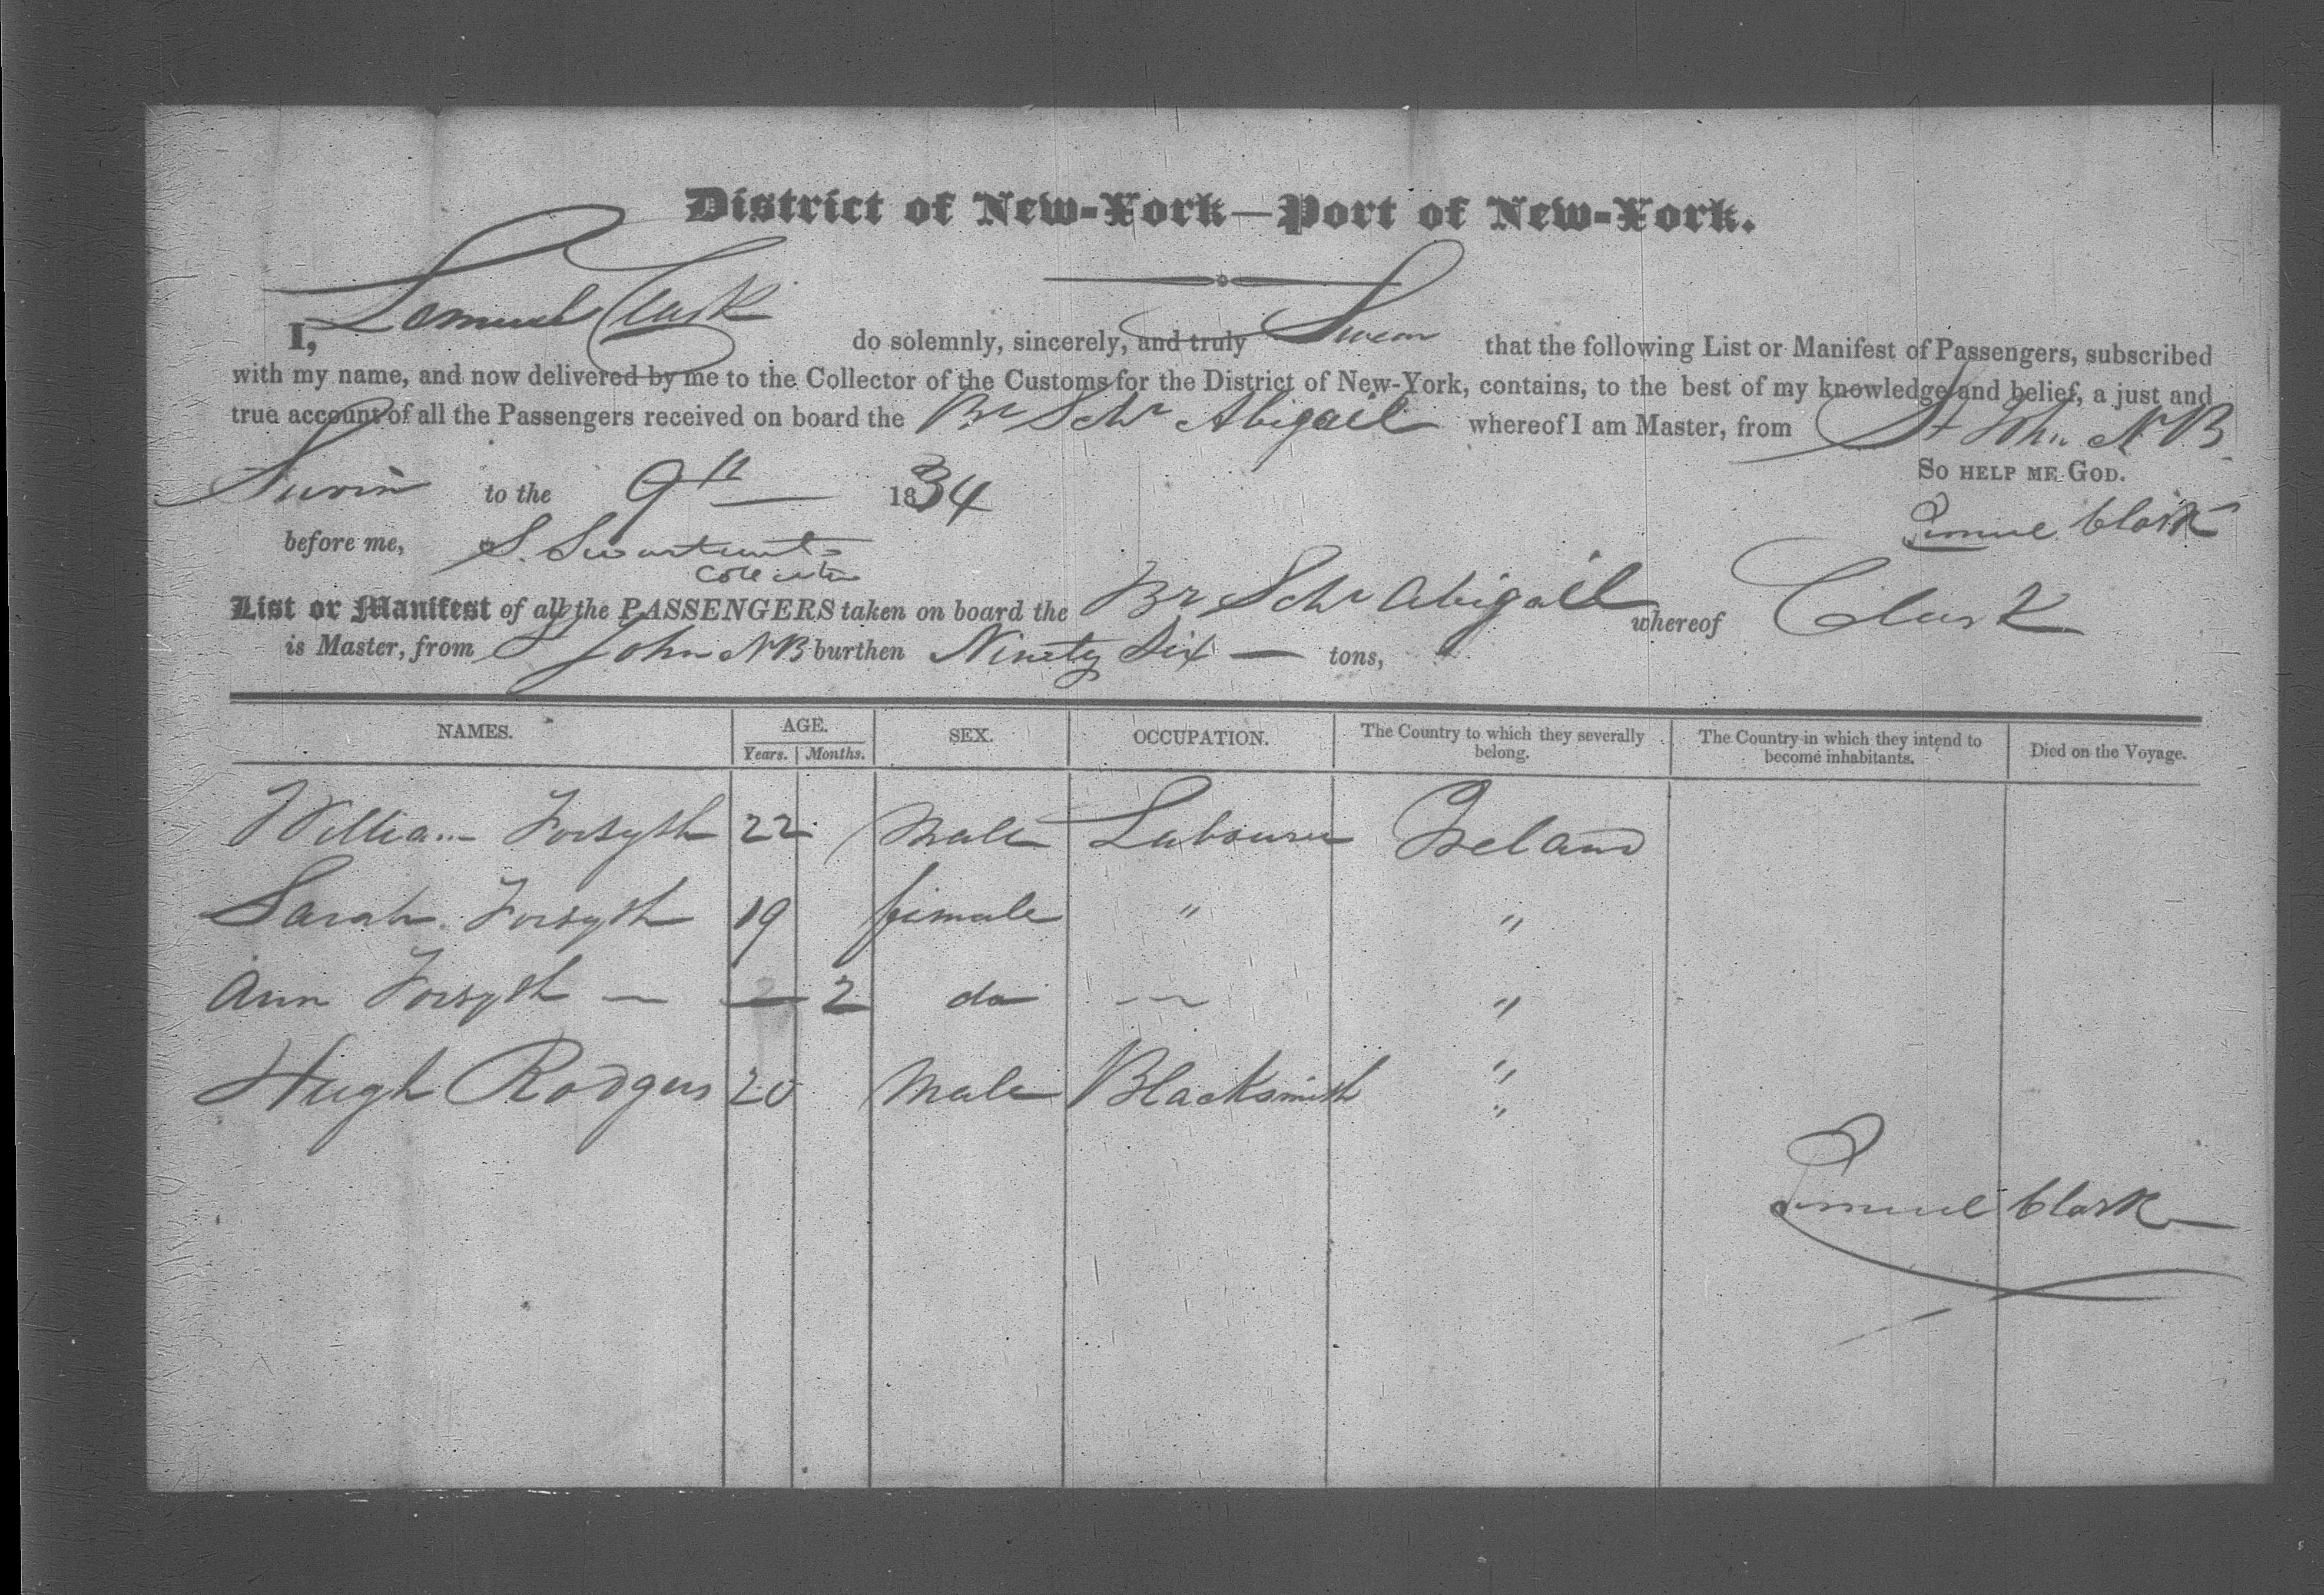 District of New-York—Port of New-York.
I, Lemuel Clark do solemnly, sincerely, and truly Swear that the following List or Manifest of Passengers, subscribed
with my name, and now delivered by me to the Collector of the Customs for the District of New-York, contains, to the best of my knowledge and belief, a just and
true account of all the Passengers received on board the Br Schr Abigail whereof I am Master, from St John N.B.
So HELP ME GOD.
to the 9th 1834
Lemuel Clark
before me, S. Swartwout
Collector
List or Manifest of all the PASSENGERS taken on board the Br Schr Abigail whereof Clark
is Master, from St John NB burthen Ninety Six — tons,
NAMES. AGE. Years. Months. SEX. OCCUPATION. The Country to which they severally belong. The Country in which they intend to become inhabitants. Died on the Voyage.
William Forsyth 22 Male Labourer Ireland
Sarah Forsyth 19 female " "
Ann Forsyth — — 2 do — "
Hugh Rodgers 20 Male Blacksmith "
"
Lemuel Clark